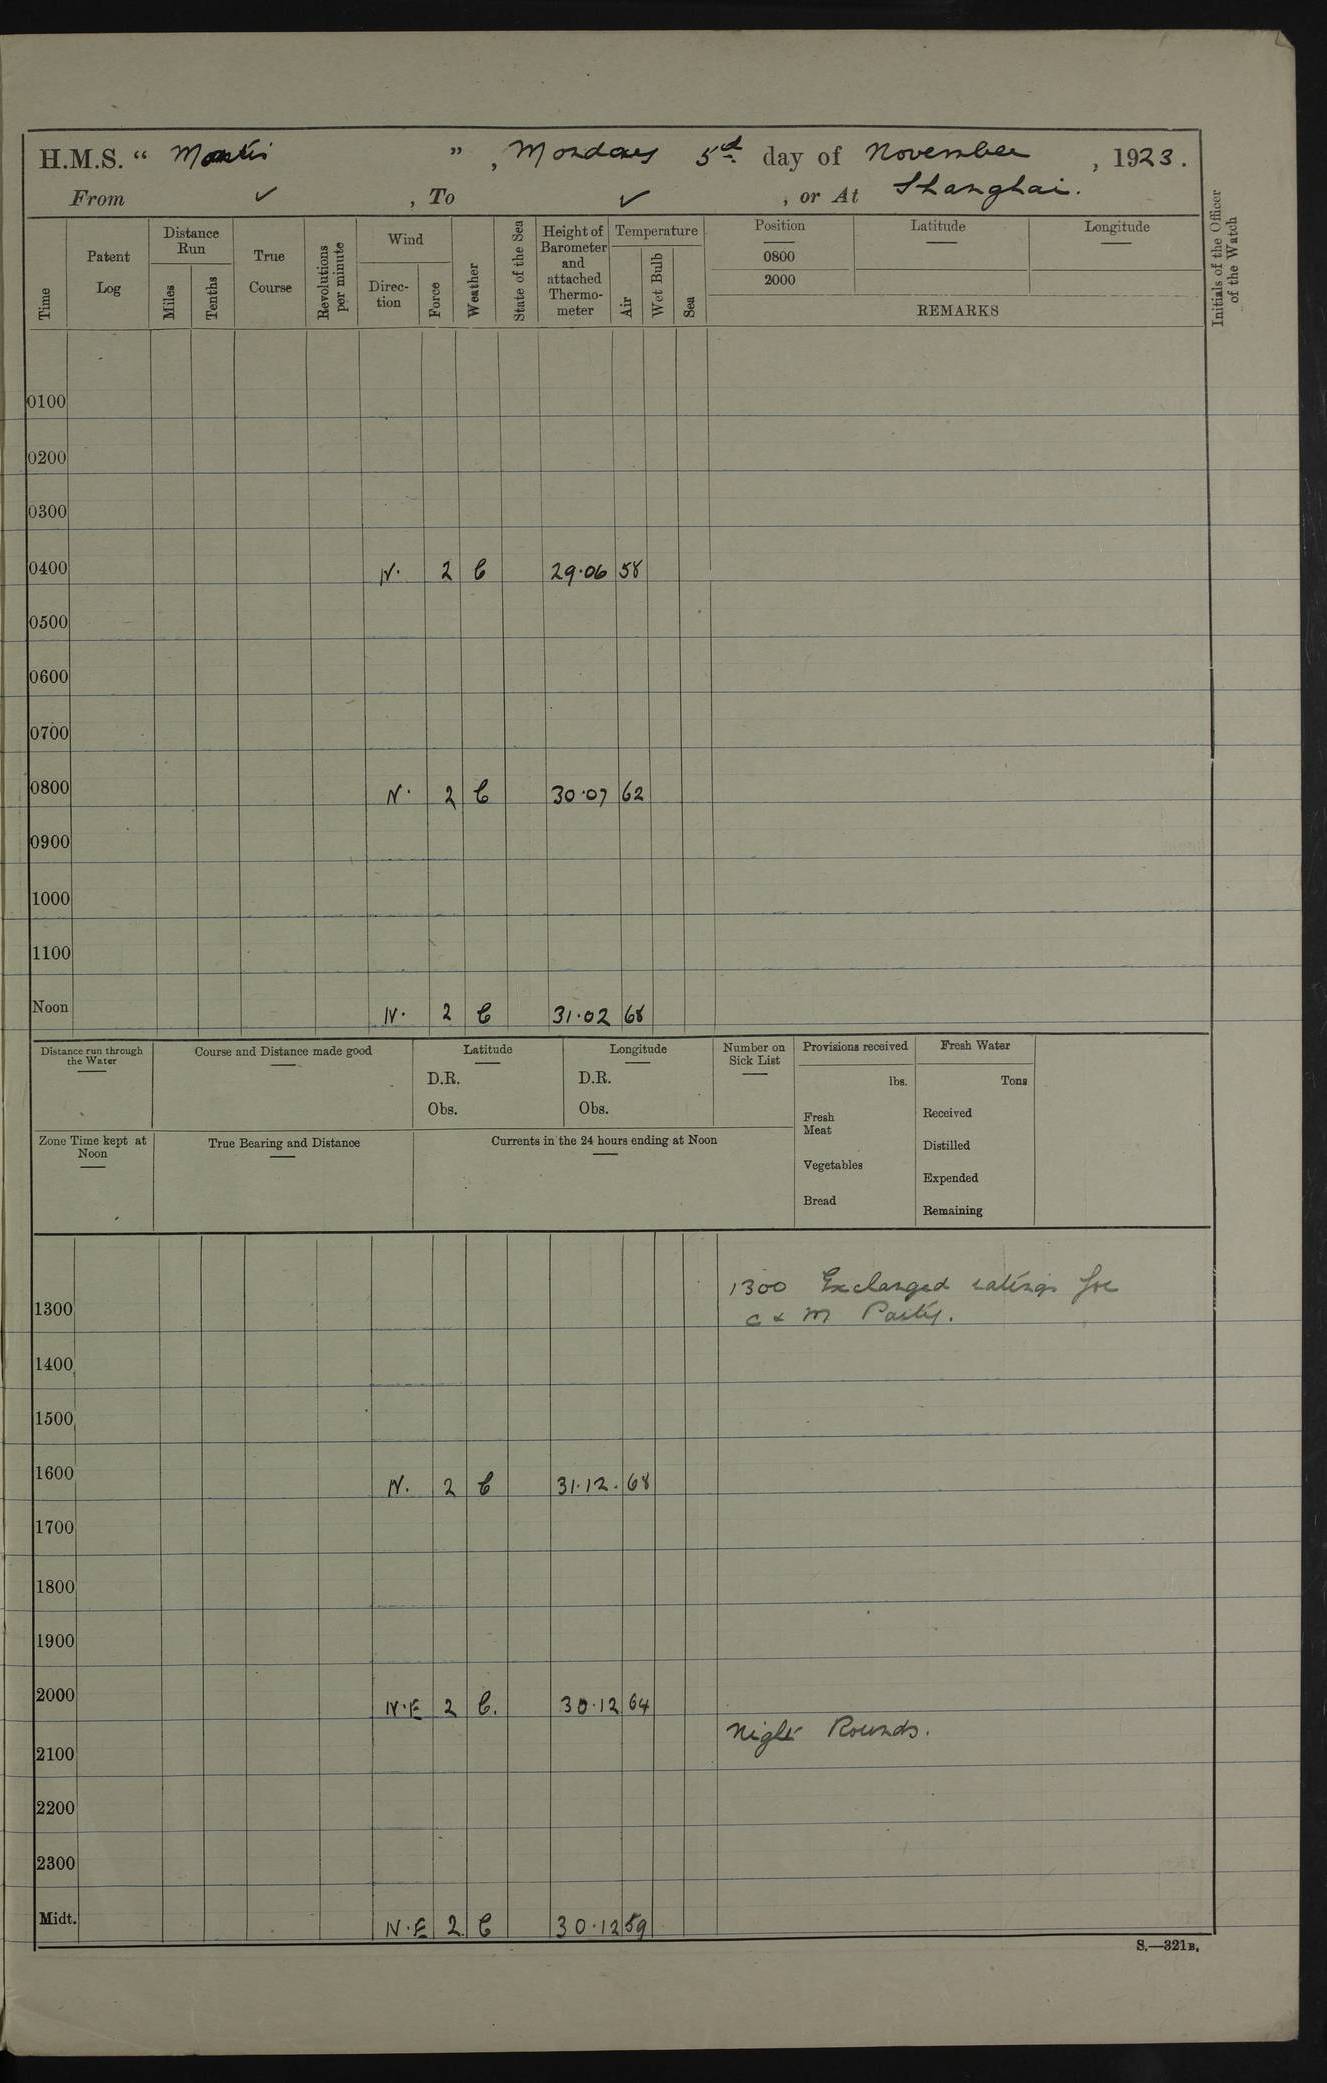 H.M.S. “ Mantis ” , Monday 5th day of November , 1923.
From ✓ , To ✓ , or At Shanghai.
Time
Patent Log
Distance Run
Miles
Tenths
True Course
Revolutions per minute
Wind
Direc-tion
Force
Weather
State of the Sea
Height of Barometer and attached Thermo-meter
Temperature
Air
Wet Bulb
Sea
Position
0800
2000
Latitude
Longitude
REMARKS
Initials of the Officer of the Watch
0100
0200
0300
0400 N. 2 C 29.06 58
0500
0600
0700
0800 N. 2 C 30.07 62
0900
1000
1100
Noon N. 2 C 31.02 68
Distance run through the Water
Course and Distance made good
Latitude
D.R.
Obs.
Longitude
D.R.
Obs.
Number on Sick List
Provisions received
lbs.
Fresh Meat
Vegetables
Bread
Fresh Water
Tons
Received
Distilled
Expended
Remaining
Zone Time kept at Noon
True Bearing and Distance
Currents in the 24 hours ending at Noon
1300 Exchanged ratings for
1300 C & M Party.
1400
1500
1600 N. 2 C 31.12. 68
1700
1800
1900
2000 N.E 2 C. 30.12 64
Night Rounds.
2100
2200
2300
Midt. N.E 2 C 30.12 59
S.—321B.